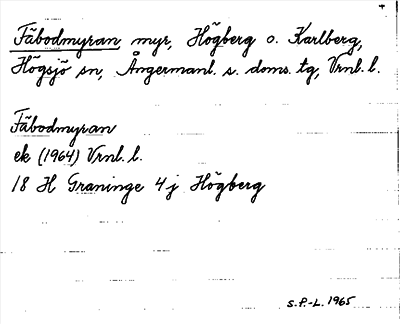 Fäbodmyran, myr, Högberg o. Karlberg,
Högsjö sn, Ångermanl. s. doms. tg, Vrnl. l.
Fäbodmyran
ek (1964) Vrnl. l.
18 H Graninge 4 j Högberg
S.P.-L. 1965